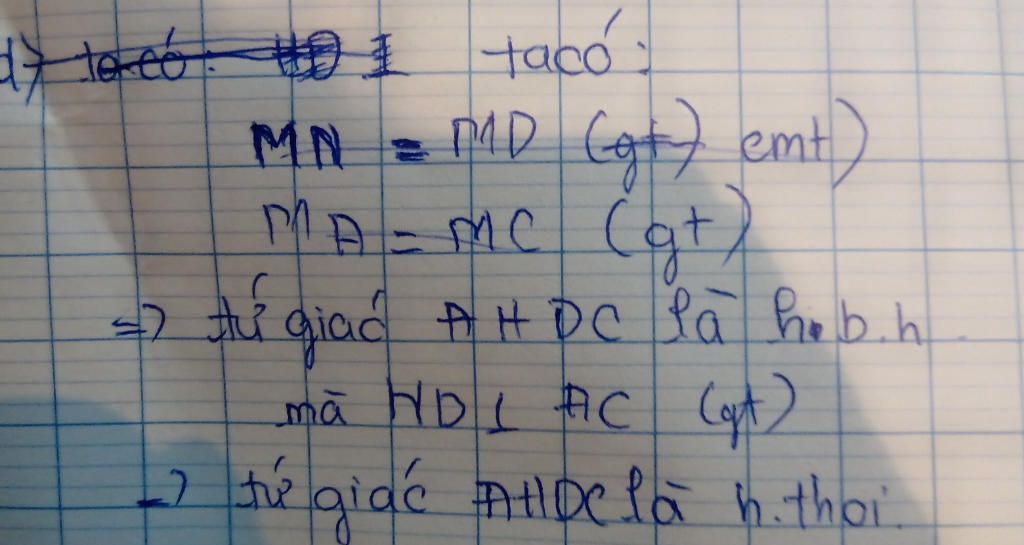 d) ta có: HD ⊥ ta có:
MN = MD (gt) cmt)
MA = MC (gt)
=> tứ giác AHDC là h.b.h.
mà HD ⊥ AC (gt)
=> tứ giác AHDC là h.thoi.